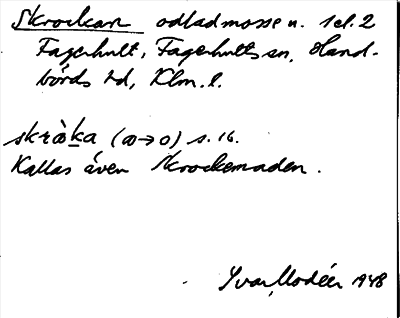 Skrockan odladmosse n. 1 el. 2
Fagerhult, Fagerhults sn, Hand-
börds hd, Klm. l.
skràka (a→o) s. 16.
Kallas även Skrockemaden.
Ivar Modéer 1948